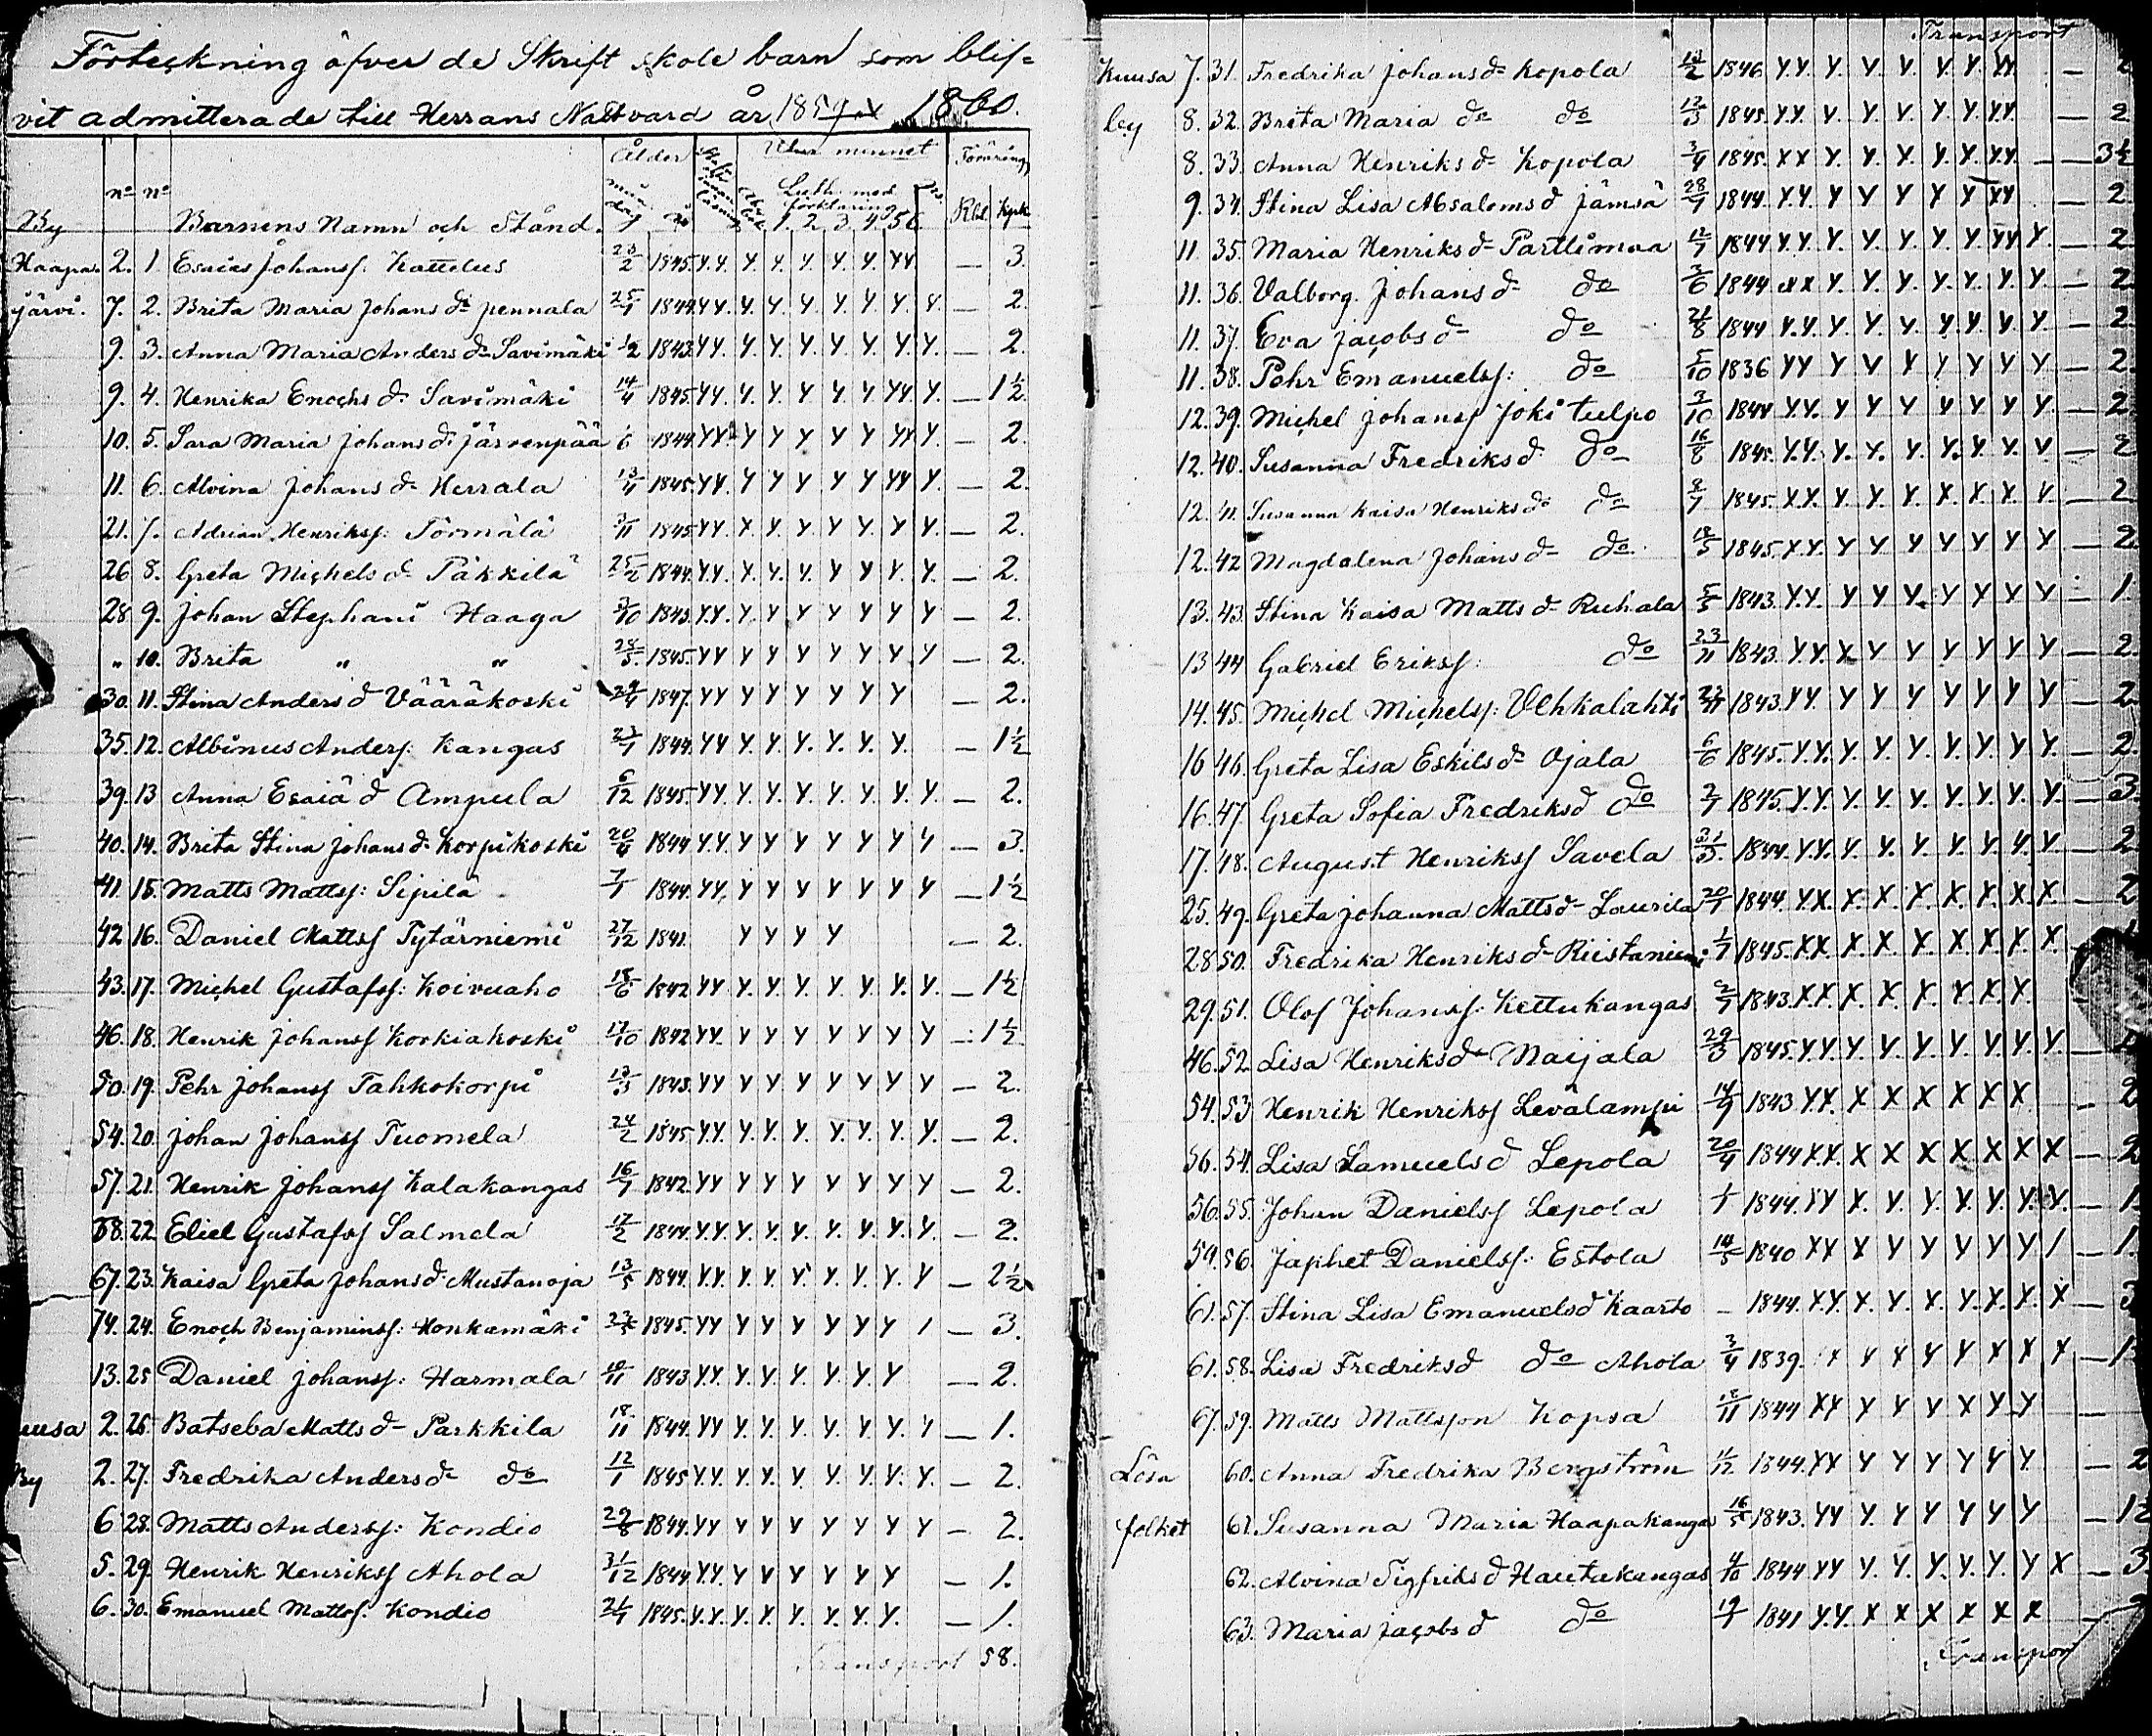 Förteckning öfver de Skrift skole barn som blif=
vit admitterade till Herrans Nattvard år 1859 x 1860.
By n:o n:o Barnens Namn och Stånd. Ålder Utur minnet Luth. med förklaring 1. 2. 3. 4. 5 6 Rbl. Kpk
Haapa- 2. 1. Esaias Johansf. Kattelus 23/2 1845. Y.Y. Y. Y. Y. Y. Y. YY — 3.
järvi. 7. 2. Brita Maria Johans d:r Pennala 25/1 1844. YY. Y. Y. Y. Y. Y. Y. Y. — 2.
9. 3. Anna Maria Anders d:r Savimäki 1/2 1843. YY. Y. Y. Y. Y. Y. Y. Y. — 2.
9. 4. Henrika Enochs d:r Savimäki 14/4 1845. YY. Y. Y. Y. Y. Y. YY. Y. — 1½
10. 5. Sara Maria Johans d:r Järvenpää 1844. YY Y Y Y Y Y YY Y. — 2.
11. 6. Alvina Johans d:r Herrala 1845. YY. Y Y Y Y Y YY Y. — 2.
21. 7. Adrian Henriksf: Törmälä 3/11 1845. YY X Y. Y. Y. Y. Y. Y. — 2.
26 8. Greta Michels d:r Päkkilä 25/2 1844. Y.Y. Y. Y. Y. Y Y Y. Y. — 2.
28 9. Johan Stephani Haaga 3/10 1843. Y.Y. Y. Y Y Y Y Y Y — 2.
„ 10. Brita „ „ 28/5. 1845. YY Y Y Y Y Y Y Y — 2.
30. 11. Stina Anders d Vääräkoski 29/4 1847. YY Y Y Y Y Y Y — 2.
35. 12. Albinus Andersf. Kangas 23/1 1844. YY Y. Y. Y. Y. Y. Y. — 1½
39. 13 Anna Esaiä d Ampula 6/12 1845. YY. Y. Y. Y. Y. Y. Y. Y. — 2.
40. 14. Brita Stina Johans d:r Korpikoski 20/4 1844 Y.Y. Y Y Y Y Y Y Y — 3.
41. 15. Matts Mattsf: Sipilä 7/1 1844. YY. Y Y Y Y Y Y Y — 1½
42 16. Daniel Mattsf Tytärniemi 27/12 1841. Y Y Y Y — 2.
43. 17. Michel Gustafsf: Koivuaho 18/6 1842 YY Y. Y. Y. Y. Y. Y. Y. — 1½
46. 18. Henrik Johansf Korkiakoski 17/10 1842 YY. Y Y Y Y Y Y Y — 1½
50. 19. Pehr Johansf Tahkokorpi 13/3 1843. YY Y Y Y Y Y Y Y — 2.
54. 20. Johan Johansf Tuomela 24/2 1845 Y.Y. Y. Y. Y. Y. Y. Y. Y. — 2.
57. 21. Henrik Johansf Kalakangas 16/7 1842. YY Y Y Y Y Y Y Y — 2.
58. 22 Eliel Gustafsf Salmela 17/2 1844. Y.Y. Y. Y. Y. Y. Y. Y. Y. — 2.
67. 23. Kaisa Greta Johans d. Mustanoja 13/5 1844. Y.Y. Y. Y. Y. Y. Y. Y. Y — 2½
74. 24. Enoch Benjaminsf: Honkamäki 1845. YY Y Y Y Y Y Y / — 3.
13. 25 Daniel Johansf: Harmala 1843 YY. Y. Y. Y. Y. Y. Y — 2.
usa 2. 26 Batseba Matts d:r Parkkila 18/11 1844. YY Y. Y. Y. Y. Y. Y. Y — 1.
By 2. 27. Fredrika Anders d:r d:o 12/1 1845 Y.Y. Y. Y. Y. Y. Y. Y. Y. — 2.
6 28. Matts Andersf: Kondio 29/8 1844. YY Y Y Y Y Y Y Y — 2.
5. 29. Henrik Henriksf Ahola 31/12 1844 Y.Y. Y Y Y Y Y Y — 1.
6. 30. Emanuel Mattsf. Kondio 21/4 1845. Y.Y. Y. Y. Y. Y. Y. Y. — 1.
Transport 58.
Transport
Kuusa 7. 31. Fredrika Johans d:r Kopola 13/2 1846. Y.Y. Y. Y. Y. Y. Y. YY —
by 8. 32. Brita Maria d:o d:o 13/3 1845. Y.Y. Y. Y. Y. Y. Y. YY — 2
8. 33. Anna Henriks d:r Kopola 3/4 1845. XX Y. Y. Y. Y. Y. Y.Y. — 3½
9. 34. Stina Lisa Absaloms d Jämsä 28/1 1844. Y.Y. Y. Y Y Y Y YY — 2
11. 35. Maria Henriks d:r Parttimaa 12/7 1844 Y.Y. Y. Y. Y. Y. Y. YY Y. — 2
11. 36. Valborg Johans d:r d:o 3/6 1844 XX Y. Y. Y. Y. Y. Y. Y. — 2
11. 37. Eva Jacobs d:r d:o 21/8 1844 Y.Y. Y. Y. Y. Y. Y. Y. Y. — 2
11. 38. Pehr Emanuelsf: d:o 5/10 1836 YY Y Y Y Y Y Y Y — 2.
12. 39. Michel Johansf Jokitulpo 3/10 1844 Y.Y. Y Y Y Y Y Y Y. — 2
12. 40. Susanna Fredriks d d:o 16/8 1845. Y.Y. Y. Y. Y. Y. Y. Y. Y — 2
12. 41. Susanna Kaisa Henriks d:r d:o 1845. X.X. Y. Y. Y. X. X. X. Y. — 2
12. 42 Magdalena Johans d:r d:o 18/5 1845. Y.Y. Y Y Y Y Y Y Y — 2
13. 43. Stina Kaisa Matts d:r Ruhala 5/5 1843. Y.Y. Y Y Y. Y Y Y Y — 1.
13 44 Gabriel Eriksf: d:o 23/11 1843. Y.Y. X Y Y Y Y Y Y — 2.
14. 45. Michel Michelsf: Vehkalahti 23/11 1843. YY Y Y Y Y Y Y Y — 2
16 46. Greta Lisa Eskils d:r Ojala 6/6 1845. Y.Y. Y. Y. Y. Y. Y. Y. Y. — 2.
16. 47. Greta Sofia Fredriks d d:o 1845. Y.Y. Y. Y. Y. Y. Y. Y. Y. — 3.
17. 48. August Henriksf Savela 31/3. 1844. Y.Y. Y. Y. Y. Y. Y. Y. Y. — 2
25. 49. Greta Johanna Matts d:r Laurila 20/7 1844. Y.X. X. X. X. X. X. X. X. — 2
28 50. Fredrika Henriks d:r Riistaniemi 1/7 1845. XX X. X. X. X. X. X. X.
29. 51. Olof Johansf: Kettukangas 1843. XX X. X. X. Y. X Y
46. 52. Lisa Henriks d:r Maijala 29/3 1845. Y.Y. Y. Y. Y. Y. Y. Y. Y. —
54. 53 Henrik Henriksf Levälampi 14/9 1843 YX. X X X X X X — 2
56. 54. Lisa Samuels d Lepola 20/4 1844 X.X. X X X X X X X — 2
56. 55. Johan Danielsf Lepola 1844. YY X. Y. Y. Y. Y. Y. Y. — 1
59. 56. Japhet Danielsf: Estola 14/5 1840 XX X Y Y Y Y Y / — 1.
61. 57. Stina Lisa Emanuels d Kaarto — 1844. X.Y. X. Y. X. Y. X. X. X — 3
61. 58. Lisa Fredriks d d:o Ahola 3/4 1839. X Y X Y Y X X X — 1
67. 59. Matts Mattsson Kopsa 12/11 1844 XY Y Y Y X Y Y —
Lösa 60. Anna Fredrika Bergström 1/12 1844. YX Y Y Y Y Y Y. — 2
folket 61. Susanna Maria Haapakangas 16/5 1843. YY Y. Y. Y Y Y Y — 1½
62. Alvina Sigfriks d Hautakangas 4/10 1844 YY Y. Y. Y. Y. Y. Y X — 3
63. Maria Jacobs d d:o 19/1 1841 Y.Y. X X X X X X —
Transport